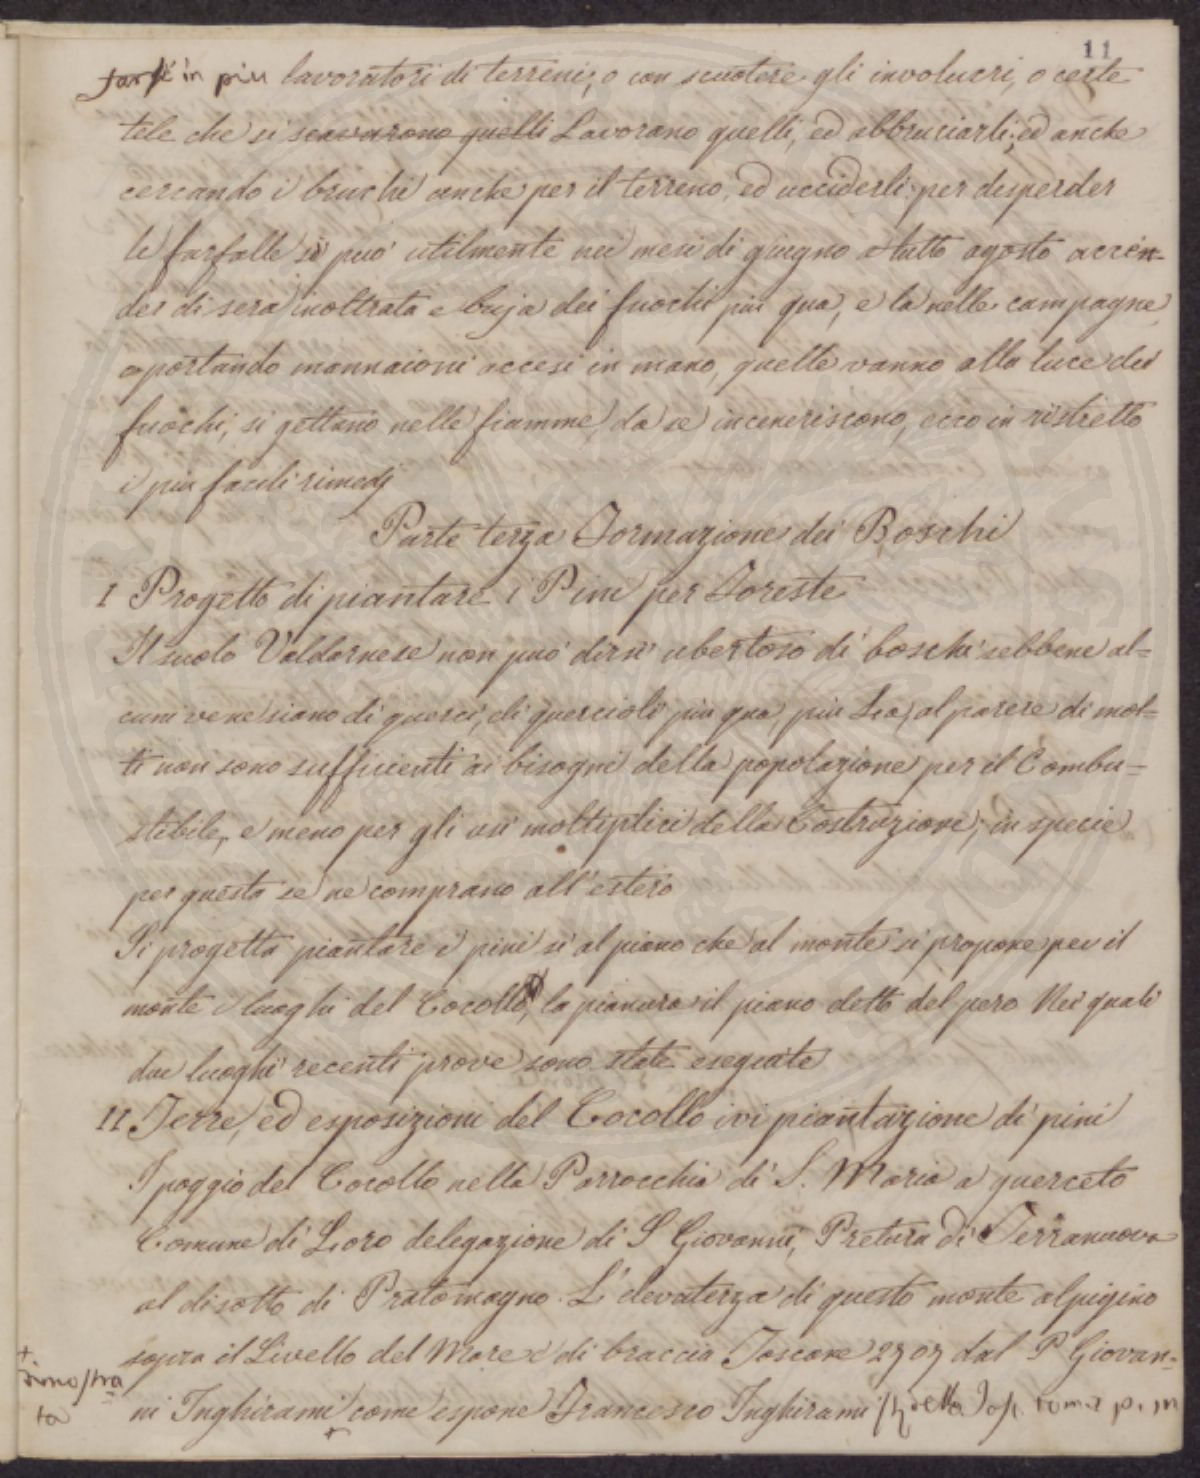 11
farsi in piu lavoratori di terreni; o con scuotere gli involucri, o certe
tele che si scavarono quelli Lavorano quelli, ed abbruciarli; ed anche
cercando i bruchi anche per il terreno, ed ucciderli: per disperder
le farfalle si può utilmente nei mesi di giugno a tutto agosto accen=
der di sera inoltrata e buja dei fuochi piu qua, e la nelle campagne
o portando mannaioni accesi in mano, quelle vanno alla luce dei
fuochi, si gettano nelle fiamme, da se inceneriscono, ecco in ristretto
i piu facili rimedj
Parte terza Formazione dei Boschi
I Progetto di piantare i Pini per Foreste
Il suolo Valdarnese non può dirsi ubertoso di boschi sebbene al=
cuni vene siano di querci, di quercioli piu qua, piu La, al parere di mol=
ti non sono sufficienti ai bisogni della popolazione per il Combu=
stibile, e meno per gli usi moltiplici della Costruzione; in specie
per questa se ne comprano all'estero
Si progetta piantare i pini si al piano che al monte si propone per il
monte i luoghi del Cocollo, la pianura il piano detto del pero Nei quali
due luoghi recenti prove sono state eseguite
II Terre, ed esposizioni del Cocollo ivi piantazione di pini
I poggio del Cocollo nella Parrocchia di S. Maria a querceto
Comune di Loro delegazione di S Giovanni, Pretura di Terranuova
al disotto di Pratomagno. L'elevatezza di questo monte alpigino
sopra il Livello del Mare è di braccia Toscane 2707 dal P Giovan=
ni Inghirami come espone Francesco Inghirami Stor della Tos. tom. 1 p. in
+
Dimostra
ta